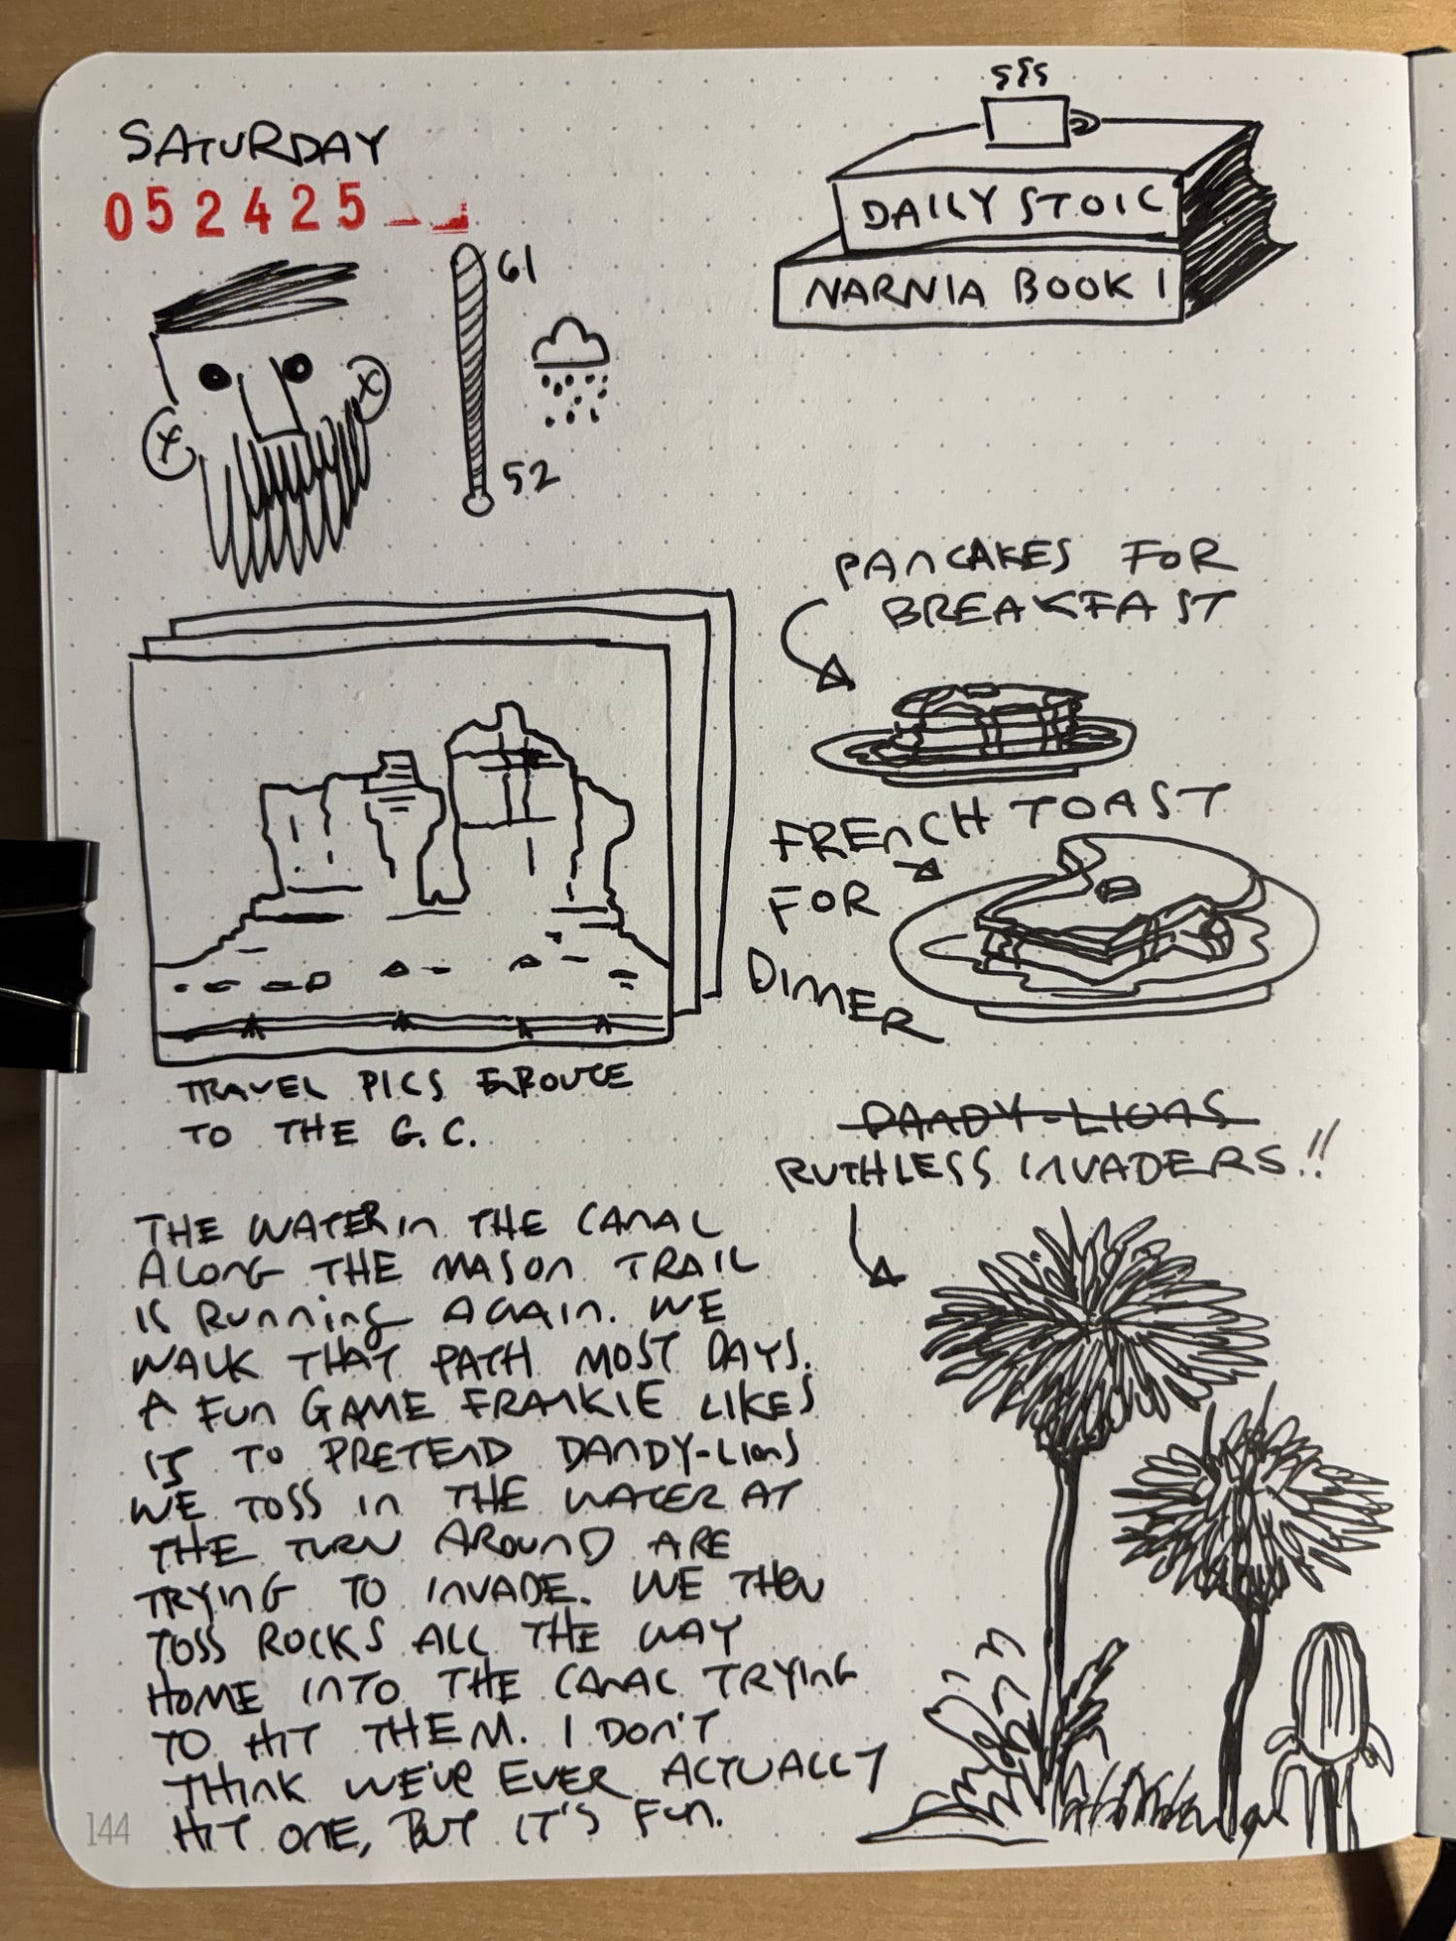 SATURDAY
052425
61
52
DAILY STOIC
NARNIA BOOK 1
PANCAKES FOR
BREAKFAST
FRENCH TOAST
FOR
DINNER
TRAVEL PICS ENROUTE
TO THE G.C.
DANDY-LIONS
RUTHLESS INVADERS!!
THE WATER IN THE CANAL
ALONG THE MASON TRAIL
IS RUNNING AGAIN. WE
WALK THAT PATH MOST DAYS.
A FUN GAME FRANKIE LIKES
IS TO PRETEND DANDY-LIONS
WE TOSS IN THE WATER AT
THE TURN AROUND ARE
TRYING TO INVADE. WE THEN
TOSS ROCKS ALL THE WAY
HOME INTO THE CANAL TRYING
TO HIT THEM. I DON'T
THINK WE'VE EVER ACTUALLY
HIT ONE, BUT IT'S FUN.
144